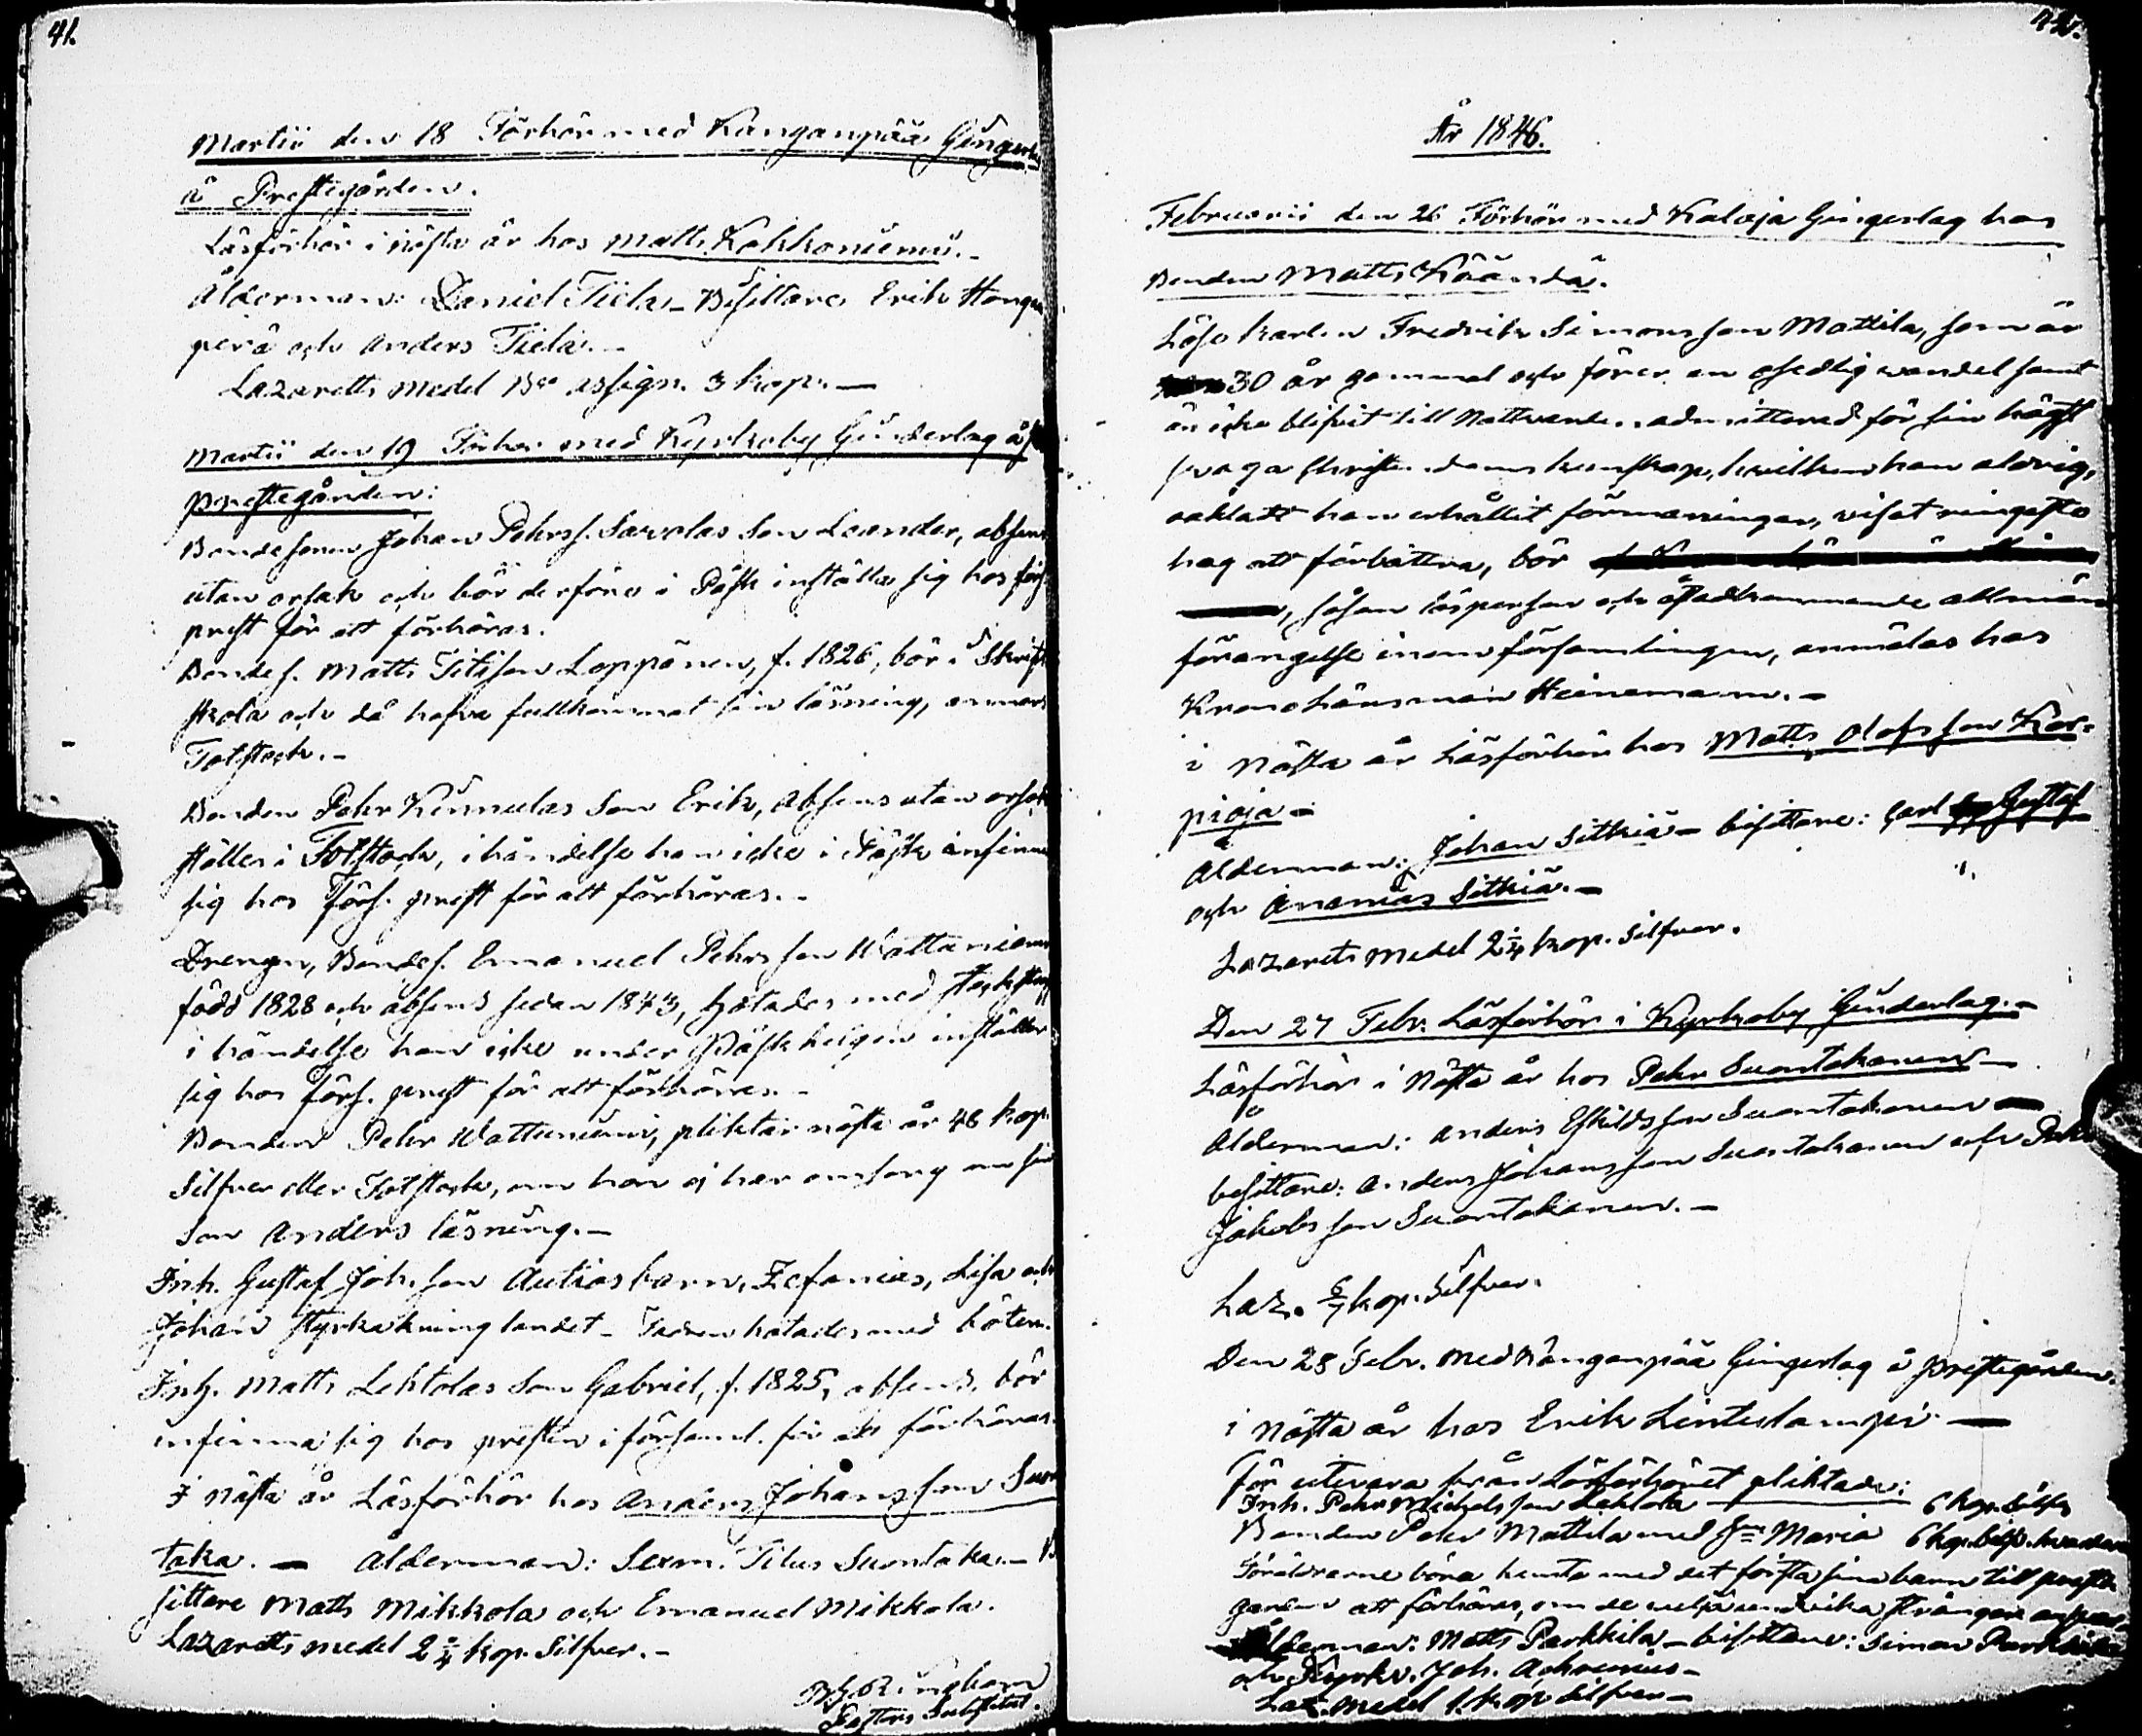 41.
Martii den 18 Förhör med Kanganpää Gingerla
å Prestegården.
Läsförhör i nästa år hos Matts Kokkoniemi.-
Ålderman: Daniel Tiela,- Bisittare Erik Honga
perä och Anders Tiela.-
Lazaretts medel Bco assign. 3 kop.-
Martii den 19 Förhör med Kyrkoby Ginderlag å
prestegården:
Bondesonen Johan Pehrss. Sarvolas Son Leander, absens
utan orsak och bör derföre i Påsk inställa sig hos förs.
prest för att förhöras.
Bondes. Matts Titisson Loppönen, f. 1826, bör i Skrift
skola och då hafva fullkommat sin läsning, annars
Fotstock.-
Bonden Pehr Kinnulas Son Erik, absens utan orsak
ställes i Fotstock, i händelse han icke i Påsk infinner
sig hos Förs. prest för att förhöras.-
Drengen, Bondes. Emanuel Pehrsson Wattaniemi
född 1828 och absens sedan 1843, hotades med
i händelse han icke under Påskhelgen inställer
sig hos förs. prest för att förhöras.-
Bonden Pehr Wattuniemi, pliktar nästa år 48 kop.
Silfver eller Fotstock, om han ej har omsorg om sin
Son Anders läsning.-
Inh. Gustaf Joh.son Autios barn, Zefanias, Lisa och
Johan stryka kring landet - Fadren hotades med böter.
Inh. Matts Lehtolas Son Gabriel, f. 1825, absens, bör
infinna sig hos presten i församl. för att förhöras.
I nästa år Läsförhör hos Anders Johansson Suon
taka. - Ålderman: Sexm. Titus Suontaka.- B
sittare Matts Mikkola och Emanuel Mikkola.
Lazaretts medel 2 1/4 kop. Silfver.-
Ringbom
Pastors Substitut.
42.
År 1846.
Februarii den 26 Förhör med Kaloja Gingerlag hos
Bonden Matts Käändä.
Löse karlen Fredrik Simonsson Mattila, som är
30 år gammal och förer en osedlig vandel samt
än icke blifvit till Nattvarden admitterad för sin högst
svaga Christendoms kunskap, hvilken han aldrig,
oaktadt han erhållit förmaningar, visat ringaste
hag att förbättra, bör
, såsom lösperson och åstadkommande allmän
förargelse inom församlingen, anmälas hos
Kronolänsman Heinemann.-
i Nästa år Läsförhör hos Matts Olofsson Kar-
pioja -
Ålderman: Johan Sitkiä - bisittare: Carl Gustaf
och Ananias Sitkiä.-
Lazarets medel 2 1/4 kop. Silfver.
Den 27 Febr. Läsförhör i Kyrkoby Ginderlag.-
Läsförhör i Nästa år hos Pehr Suontakanen -
Ålderman: Anders Eskildsson Suontakanen -
bisittare: Anders Johansson Suontakanen och Pehr
Jakobsson Suontakanen.-
Laz. 6/7 kop. Silfver.
Den 28 Febr. med Kanganpää Gingerlag å prestegården.
i Nästa år hos Erik Lintulampi -
För utevara från Läsförhöret pliktade:
Inh. Pehr Michelsson Lehtola - 6 kop. Silfv
Bonden Pehr Mattila med Maria 6 kop. Silfv. hvardera
Föräldrarne böra hemta med det första sina barn till prest
gården att förhöras, om de vilja undvika strängare
Ålderman: Matts Parkkila - bisittare: Simon Parkkila
och Kyrkv. Joh. Achrenius -
Laz. medel 1. kop Silfver -